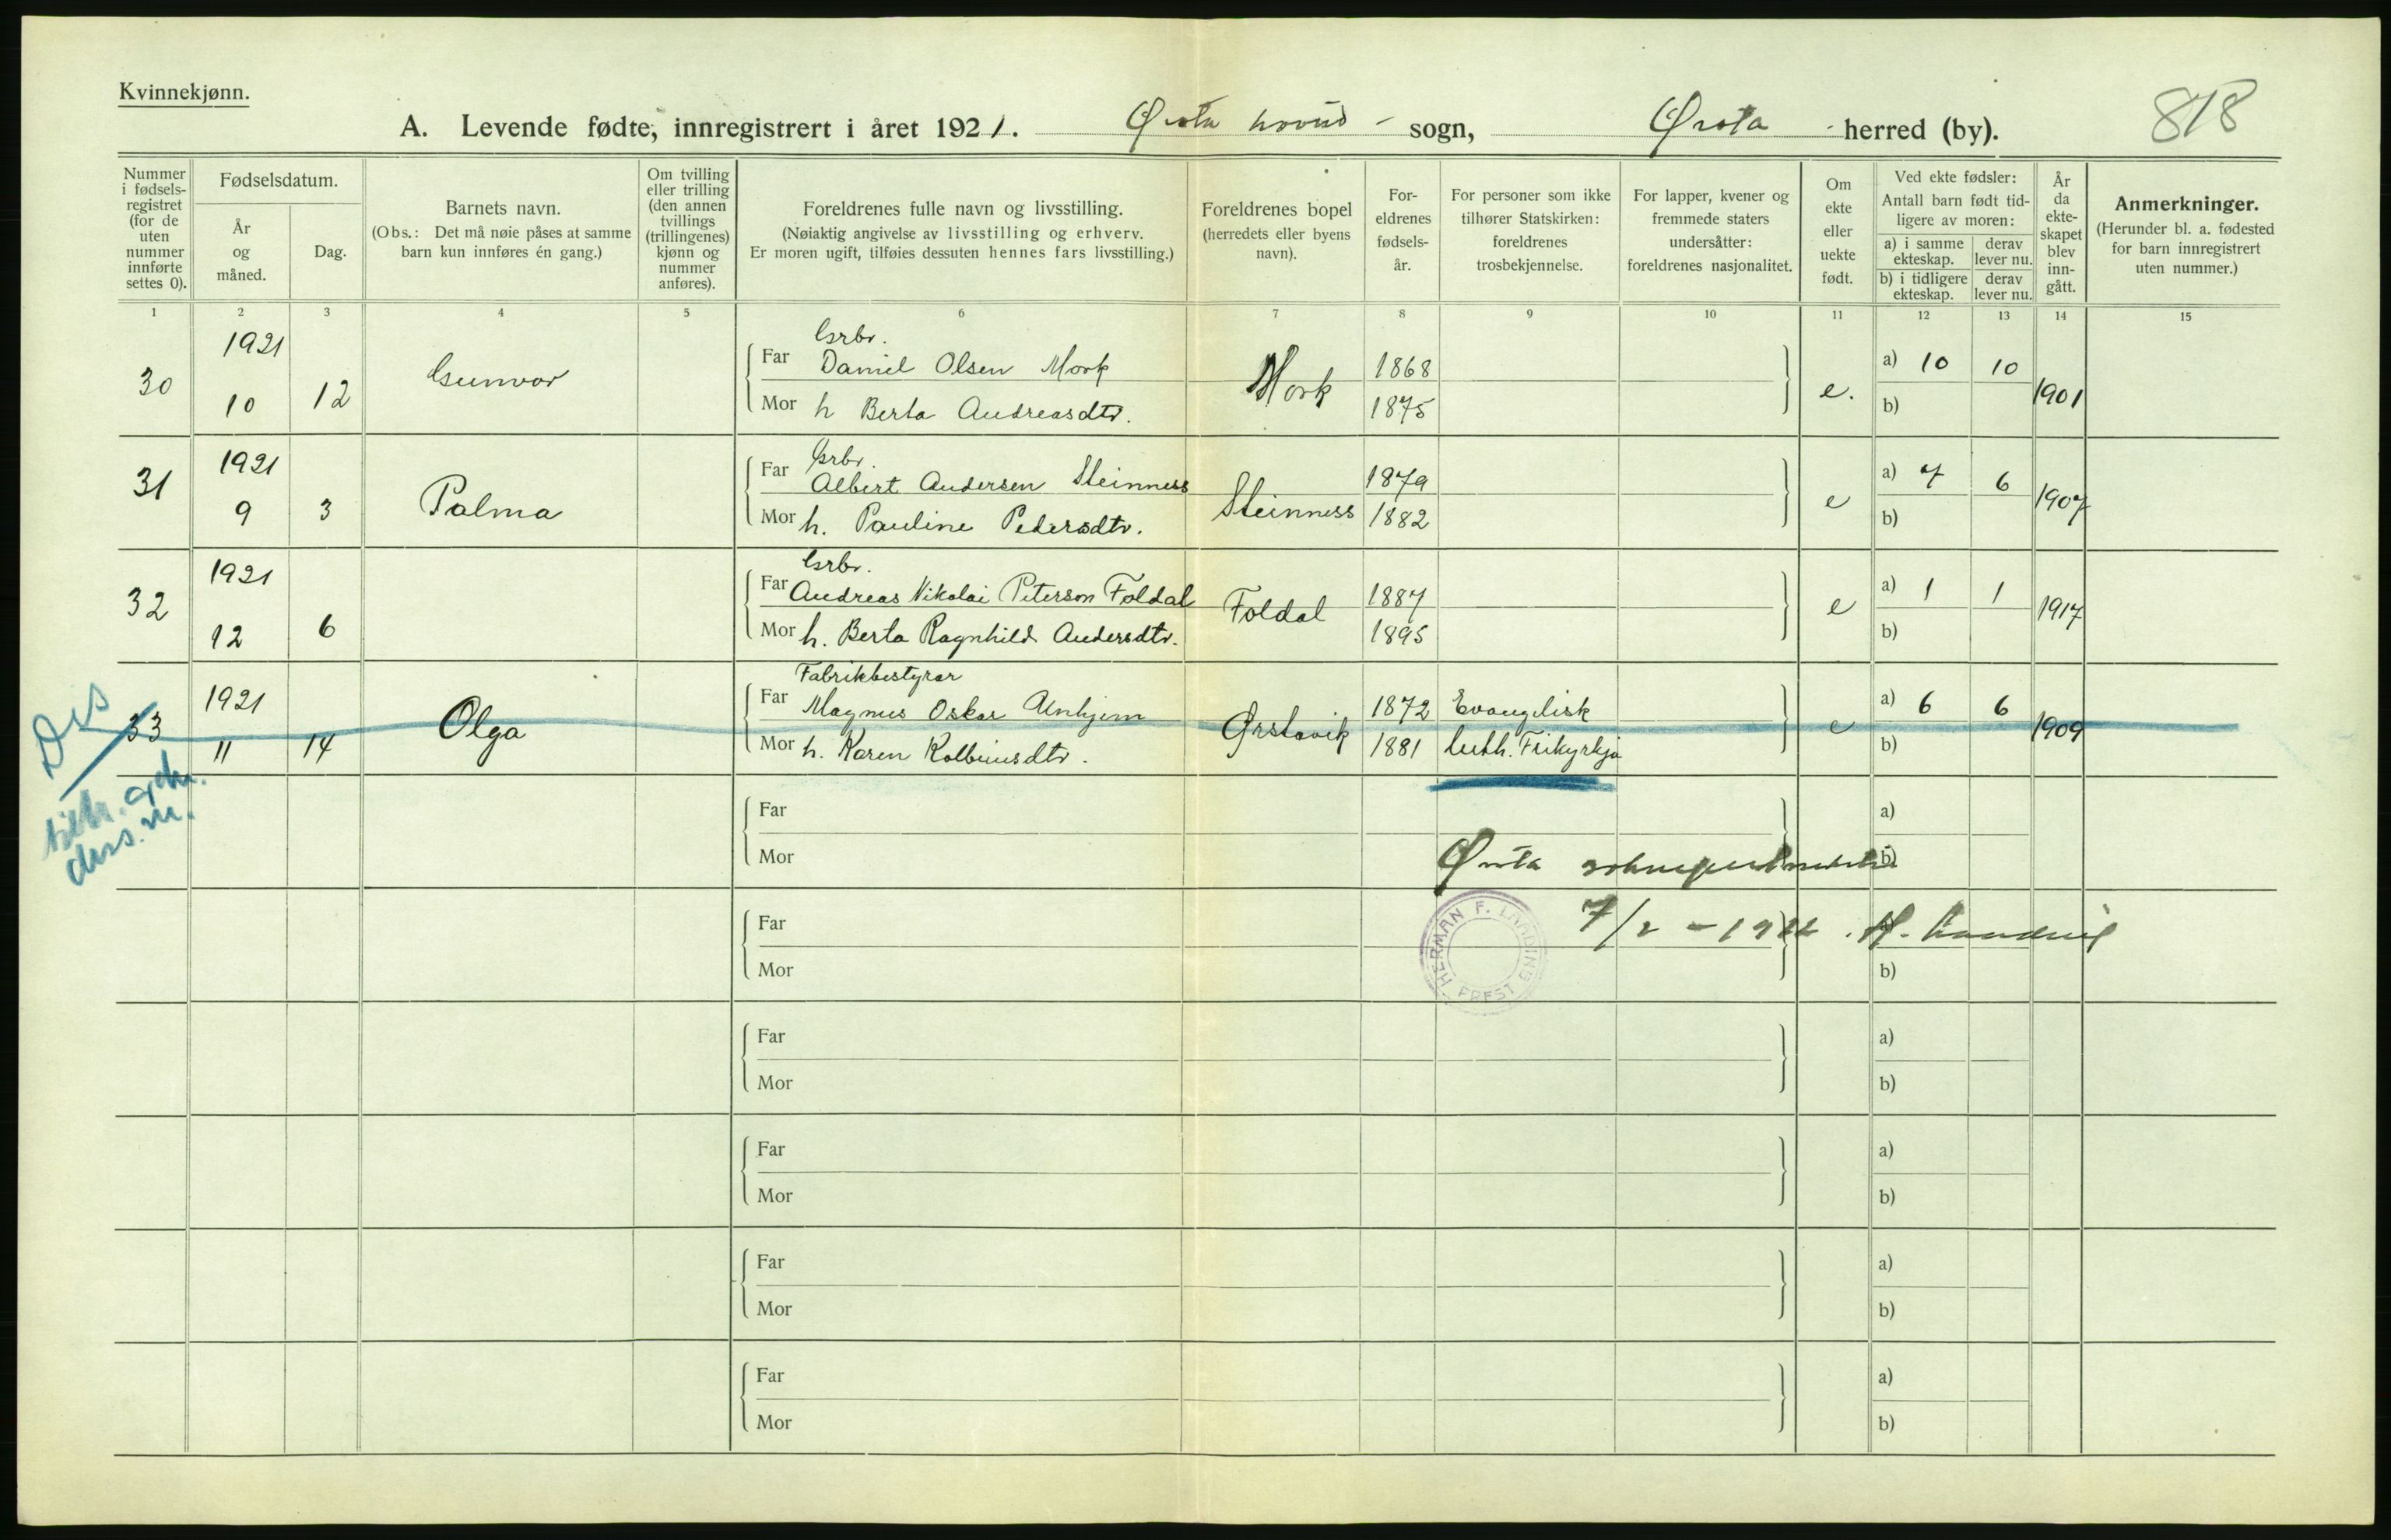 Kvinnekjønn.
A. Levende fødte, innregistrert i året 1921. Ørsta hovud- sogn, Ørsta herred (by). 818
Nummer i fødselsregistret (for de uten nummer innførte settes 0).
Fødselsdatum.
År og måned.
Dag.
Barnets navn.
(Obs.: Det må nøie påses at samme barn kun innføres én gang.)
Om tvilling eller trilling (den annen tvillings (trillingenes) kjønn og nummer anføres).
Foreldrenes fulle navn og livsstilling.
(Nøiaktig angivelse av livsstilling og erhverv.
Er moren ugift, tilføies dessuten hennes fars livsstilling.)
Foreldrenes bopel (herredets eller byens navn).
For-eldrenes fødsels-år.
For personer som ikke tilhører Statskirken: foreldrenes trosbekjennelse.
For lapper, kvener og fremmede staters undersåtter: foreldrenes nasjonalitet.
Om ekte eller uekte født.
Ved ekte fødsler:
Antall barn født tidligere av moren:
a) i samme ekteskap.
derav lever nu.
b) i tidligere ekteskap.
derav lever nu.
År da ekteskapet blev inngått.
Anmerkninger.
(Herunder bl. a. fødested for barn innregistrert uten nummer.)
1 2 3 4 5 6 7 8 9 10 11 12 13 14 15
30 1921 10 12 Gunvor
Grbr.
Far Daniel Olsen Mork Mork 1868 e. a) 10 10 1901
Mor h Berta Andreasdtr. 1875 b)
31 1921 9 3 Palma
Grbr.
Far Albert Andersen Steinness Steinness 1879 e a) 7 6 1907
Mor h. Pauline Pedersdtr. 1882 b)
32 1921 12 6
Grbr.
Far Andreas Nikolai Peterson Foldal Foldal 1887 e a) 1 1 1917
Mor h. Berta Ragnhild Andersdtr. 1895 b)
33 1921 11 14 Olga
Fabrikbestyrar
Far Magnus Oskar Alnhjem Ørstavik 1872 Evangelisk e a) 6 6 1909
Mor h. Karen Kolbeinsdtr. 1881 luth. Frikyrkja b)
Dis
Far a)
Mor b)
Ørsta
Far
7/2 - 1922.
Mor b)
HERMAN F. PREST
Far a)
Mor b)
Far a)
Mor b)
Far a)
Mor b)
Far a)
Mor b)